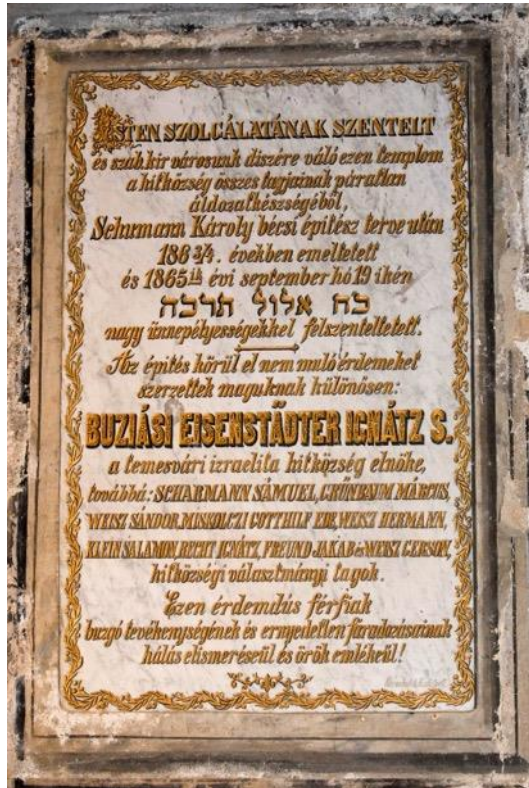 ISTEN SZOLGÁLATÁNAK SZENTELT
és szab. kir városunk diszére váló ezen templom
a hitközség összes tagjainak páratlan
áldozatkészségéből,
Schumann Károly bécsi épitész terve után
186 3/4. években emeltetett
és 1865 ik évi september hó 19 ikén
כח אלול תרכה
nagy ünnepélyességekkel felszenteltetett.
Az épités körül el nem muló érdemeket
szerzettek maguknak különösen:
BUZIÁSI EISENSTÄDTER IGNÁTZ S.
a temesvári izraelita hitközség elnöke,
továbbá: SCHARMANN SÁMUEL, GRÜNBAUM MÁRCUS,
WEISZ SÁNDOR, MISKOLCZI GOTTHILF EDE, WEISZ HERMANN,
KLEIN SALAMON, RECHT IGNÁTZ, FREUND JAKAB és WEISZ GERSON,
hitközségi választmányi tagok.
Ezen érdemdús férfiak
buzgó tevékenységének és ernyedetlen fáradozásainak
hálás elismeréseül és örök emlékeül!